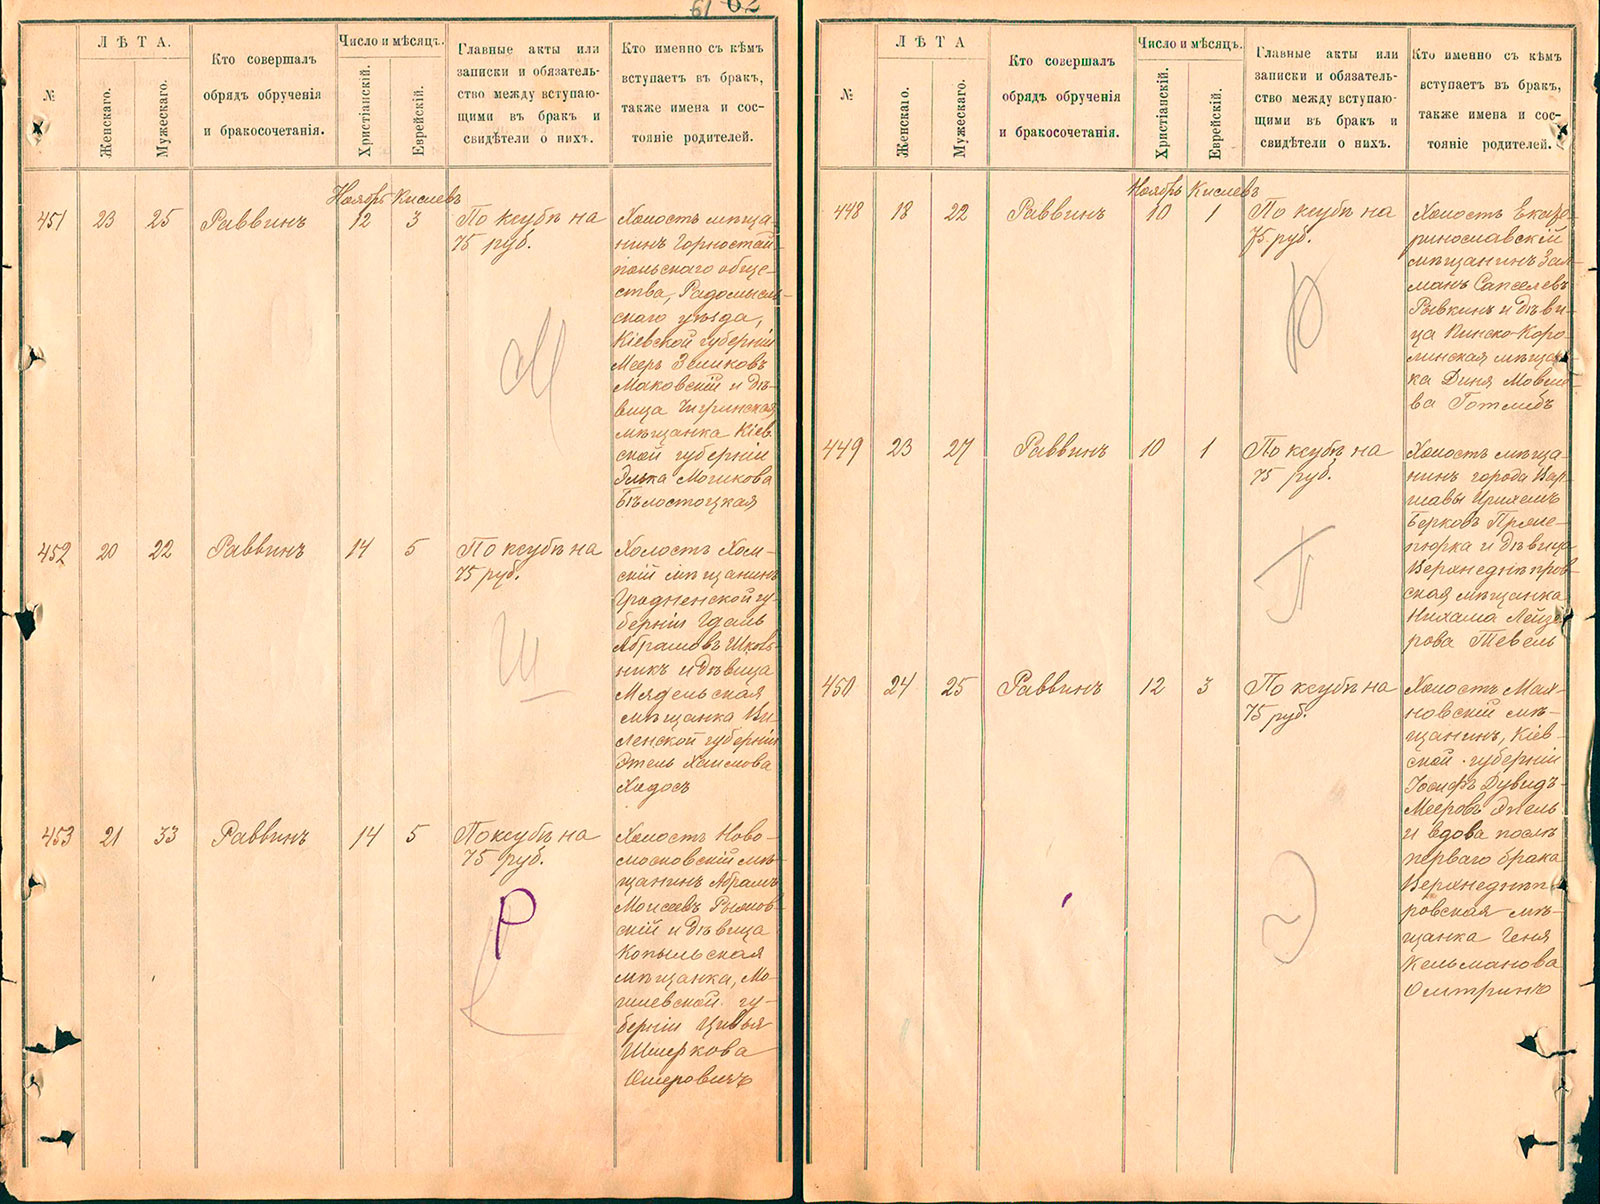 61 62
№
ЛѢТА.
Женскаго.
Мужескаго.
Кто совершалъ
обрядъ обрученія
и бракосочетанія.
Число и мѣсяцъ.
Христіанскій.
Еврейскій.
Главные акты или
записки и обязатель-
ство между вступаю-
щими въ бракъ и
свидѣтели о нихъ.
Кто именно съ кѣмъ
вступаетъ въ бракъ,
также имена и сос-
тояніе родителей.
Ноябрь Кислевъ
451 23 25 Раввинъ 12 3 По ксубѣ на
75 руб.
Холостъ мѣща-
нинъ Горностай-
польскаго обще-
ства, Радомысль-
скаго уѣзда,
Кіевской губерніи
Мееръ Зеликовъ
Маковскій и дѣ-
вица Чигринская
мѣщанка Кіев-
ской губерніи
Элька Мошкова
Бѣлостоцкая
М
452 20 22 Раввинъ 14 5 По ксубѣ на
75 руб.
Холостъ Хом-
скій мѣщанинъ
Гродненской гу-
берніи Гдаль
Абрамовъ Школь-
никъ и дѣвица
Мядельская
мѣщанка Ви-
ленской губерніи
Этель Хаимова
Ходосъ
Ш
453 21 33 Раввинъ 14 5 По ксубѣ на
75 руб.
Холостъ Ново-
московскій мѣ-
щанинъ Абрамъ
Моисеевъ
скій и дѣвица
Копыльская
мѣщанка, Мо-
гилевской гу-
берніи Цивья
Шмеркова
Ошеровичъ
Р
№
ЛѢТА
Женскаго.
Мужескаго.
Кто совершалъ
обрядъ обрученія
и бракосочетанія.
Число и мѣсяцъ.
Христіанскій.
Еврейскій.
Главные акты или
записки и обязатель-
ство между вступаю-
щими въ бракъ и
свидѣтели о нихъ.
Кто именно съ кѣмъ
вступаетъ въ бракъ,
также имена и сос-
тояніе родителей.
Ноябрь Кислевъ
448 18 22 Раввинъ 10 1 По ксубѣ на
75 руб.
Холостъ Екате-
ринославскій
мѣщанинъ Зал-
манъ
Рывкинъ и дѣви-
ца Пинско-Каро-
линская мѣщан-
ка Диня Мовшо-
ва Готлибъ
449 23 27 Раввинъ 10 1 По ксубѣ на
75 руб.
Холостъ мѣща-
нинъ города Вар-
шавы
Берковъ
и дѣвица
Верхнеднѣпров-
ская мѣщанка
Нихама Лейзе-
рова Тевель
П
450 24 25 Раввинъ 12 3 По ксубѣ на
75 руб.
Холостъ Мах-
новскій мѣ-
щанинъ, Кіев-
ской губерніи
Іосифъ Дувидъ
Мееровъ Эпель
и вдова послѣ
перваго брака
Верхнеднѣп-
ровская мѣ-
щанка Геня
Кельманова
Омтринъ
Э